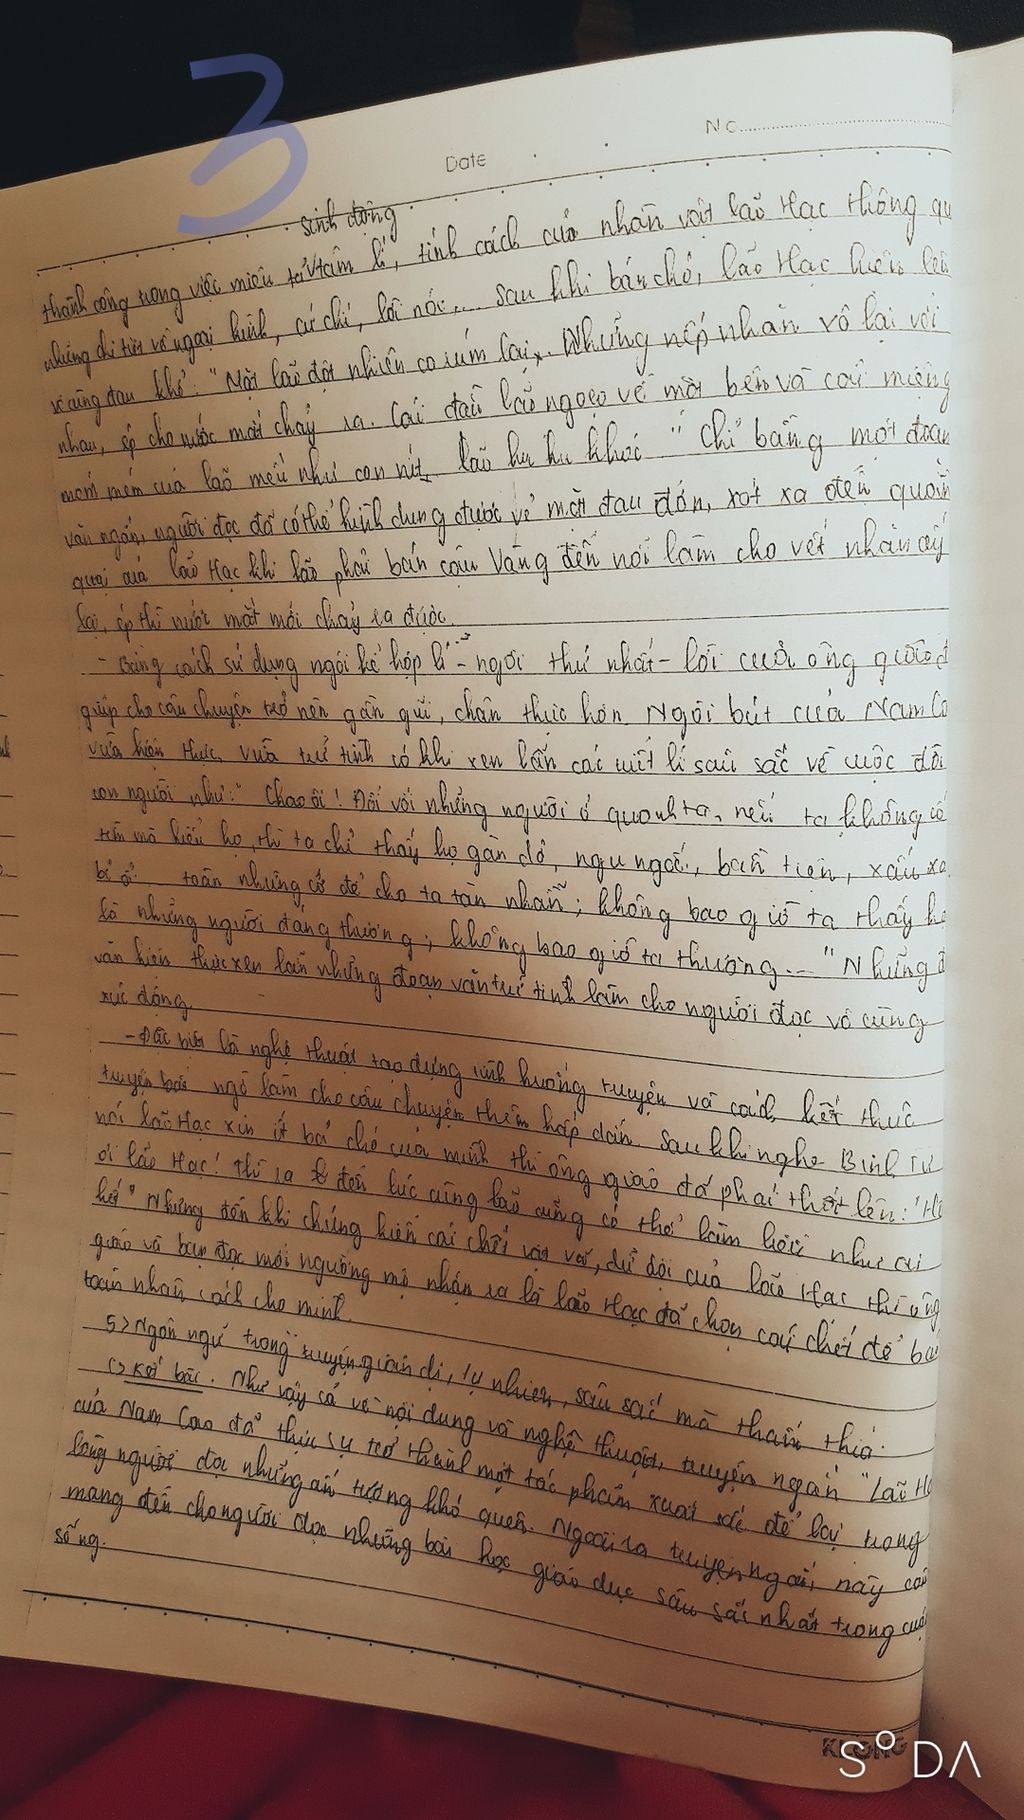 3
No
Date
sinh động
thành công trong việc miêu tả tâm lí, tính cách của nhân vật lão Hạc thông qu
những chi tiết về ngoại hình, cử chỉ, lời nói.... Sau khi bán chó, lão Hạc hiện lên
vô cùng đau khổ: "Mặt lão đột nhiên co rúm lại. Những nếp nhăn xô lại với
nhau, ép cho nước mắt chảy ra. Cái đầu lão ngoẹo về một bên và cái miệng
móm mém của lão mếu như con nít. Lão hu hu khóc" Chỉ bằng một đoạn
văn ngắn, người đọc đã có thể hình dung được vẻ mặt đau đớn, xót xa đến quằn
quại của lão Hạc khi lão phải bán cậu Vàng đến nỗi làm cho vết nhăn ấy
lại, ép thì nước mắt mới chảy ra được.
- Bằng cách sử dụng ngôi kể hợp lí - ngôi thứ nhất - lời của ông giáo đ
giúp cho câu chuyện trở nên gần gũi, chân thực hơn. Ngòi bút của Nam Ca
vừa hiện thực, vừa trữ tình có khi xen lẫn các triết lí sâu sắc về cuộc đời
con người như: "Chao ôi! Đối với những người ở quanh ta, nếu ta không cố
tìm mà hiểu họ, thì ta chỉ thấy họ gàn dở, ngu ngốc, bần tiện, xấu xa,
bỉ ổi toàn những cớ để cho ta tàn nhẫn; không bao giờ ta thấy họ
là những người đáng thương; không bao giờ ta thương..." Những đ
văn hiện thực xen lẫn những đoạn văn trữ tình làm cho người đọc vô cùng
xúc động.
- Đặc biệt là nghệ thuật tạo dựng tình huống truyện và cách kết thúc
truyện bất ngờ làm cho câu chuyện thêm hấp dẫn. Sau khi nghe Binh Tư
nói lão Hạc xin ít bả chó của mình thì ông giáo đã phải thốt lên: "Hỡ
ơi lão Hạc! Thì ra đến lúc cùng lão cũng có thể làm liều như ai
hết" Nhưng đến khi chứng kiến cái chết vật vã, dữ dội của lão Hạc thì ông
giáo và bạn đọc mới ngưỡng mộ nhận ra là lão Hạc đã chọn cái chết để bả
toàn nhân cách cho mình.
5> Ngôn ngữ trong truyện giản dị, tự nhiên, sâu sắc mà thấm thía.
C> Kết bài. Như vậy cả về nội dung và nghệ thuật, truyện ngắn "Lão Hạ
của Nam Cao đã thực sự trở thành một tác phẩm xuất sắc để lại trong
lòng người đọc những ấn tượng khó quên. Ngoài ra truyện ngắn này còn
mang đến cho người đọc những bài học giáo dục sâu sắc nhất trong cuộ
sống.
KLONG
SODA